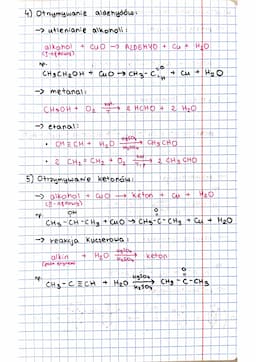 4) Otrzymywanie aldehydów:
→ utlenianie alkoholi:
alkohol + CuO → ALDEHYD + Cu + H₂O
(I-rzędowy)
np.
CH₃CH₂OH + CuO → CH₃-C=O H + Cu + H₂O
→ metanal:
CH₃OH + O₂ → 2 HCHO + 2 H₂O
→ etanal:
• CH≡CH + H₂O HgSO₄ H₂SO₄ → CH₃CHO
• 2 CH₂=CH₂ + O₂ → 2 CH₃CHO
5) Otrzymywanie ketonów:
→ alkohol + CuO → keton + Cu + H₂O
(II-rzędowy)
np. OH O
CH₃-CH-CH₃ + CuO → CH₃-C-CH₃ + Cu + H₂O
→ reakcja Kuczerowa:
alkin + H₂O HgSO₄ H₂SO₄ → keton
np. O
CH₃-C≡CH + H₂O HgSO₄ H₂SO₄ → CH₃-C-CH₃